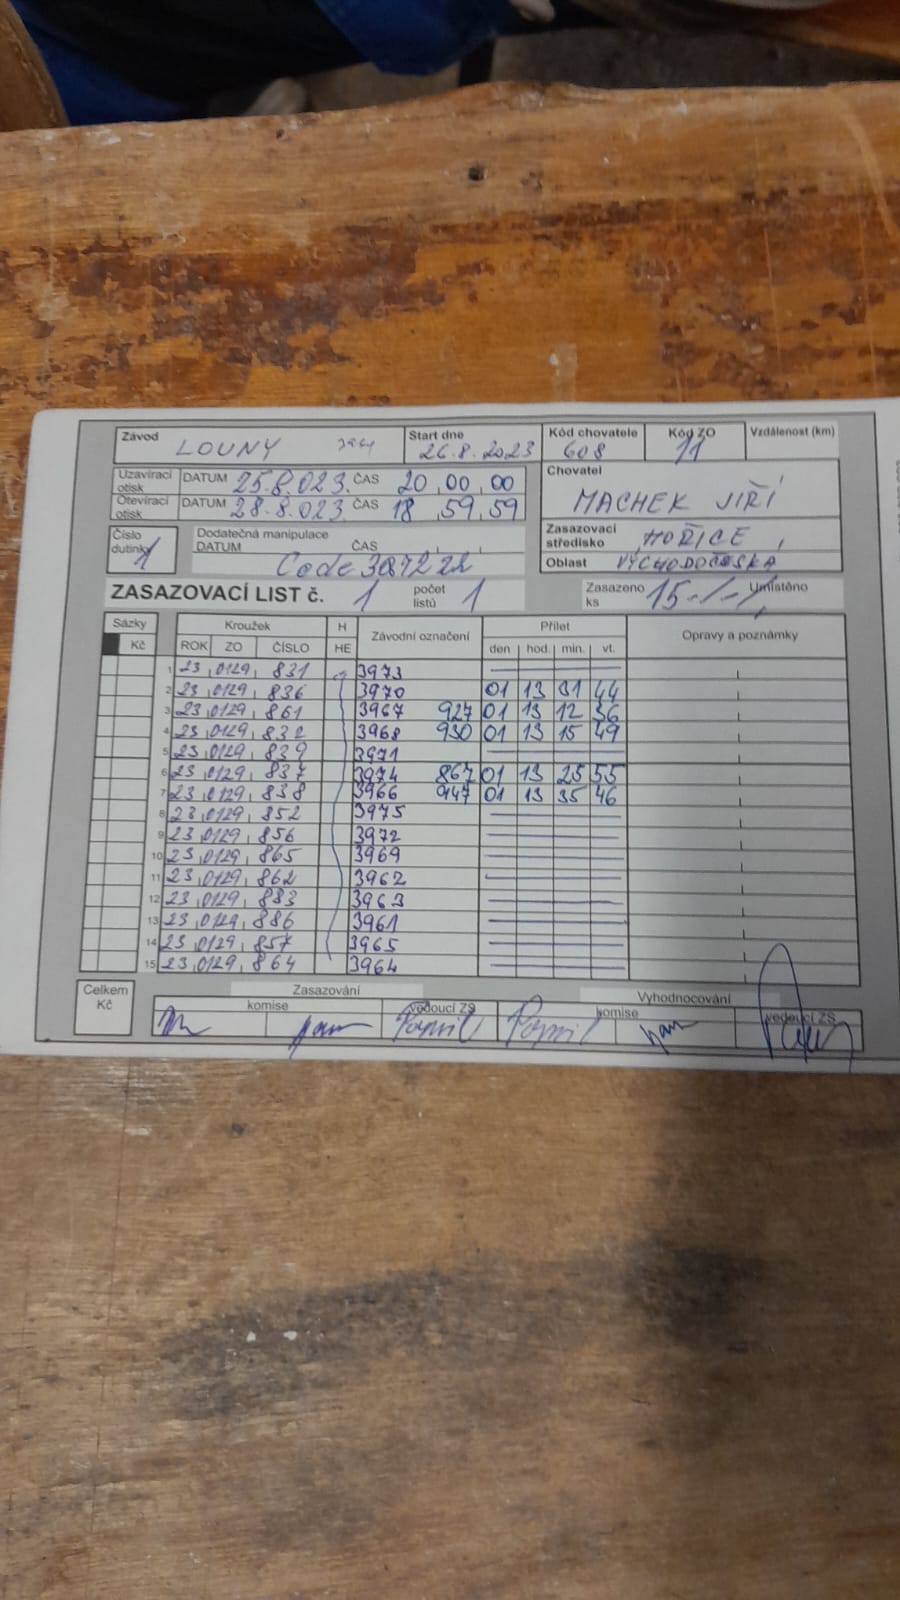 Závod LOUNY Start dne 26.8.2023 Kód chovatele 608 Kód ZO 11 Vzdálenost (km)
Uzavírací otisk DATUM 25.8.023. ČAS 20 , 00 , 00
Otevírací otisk DATUM 28.8.023. ČAS 18 , 59 , 59
Chovatel
MACHEK JIŘÍ
Číslo dutinky 1
Dodatečná manipulace
DATUM ČAS
Code
Zasazovací středisko HOŘICE
Oblast VÝCHODOČESKÁ
ZASAZOVACÍ LIST č. 1 počet listů 1 Zasazeno ks 15 -/-/ Umístěno
Sázky Kroužek H Závodní označení Přílet Opravy a poznámky
Kč ROK ZO ČÍSLO HE den hod. min. vt.
1 23 , 0129 , 831 3973
2 23 , 0129 , 836 3970 01 13 31 44
3 23 , 0129 , 861 3967 927 01 13 12 36
4 23 , 0129 , 832 3968 930 01 13 15 49
5 23 , 0129 , 839 3971
6 23 , 0129 , 837 3974 867 01 13 25 55
7 23 , 0129 , 838 3966 947 01 13 35 46
8 23 , 0129 , 852 3975
9 23 , 0129 , 856 3972
10 23 , 0129 , 865 3969
11 23 , 0129 , 862 3962
12 23 , 0129 , 883 3963
13 23 , 0129 , 886 3961
14 23 , 0129 , 857 3965
15 23 , 0129 , 864 3964
Celkem Kč
Zasazování Vyhodnocování
komise vedoucí ZS komise vedoucí ZS